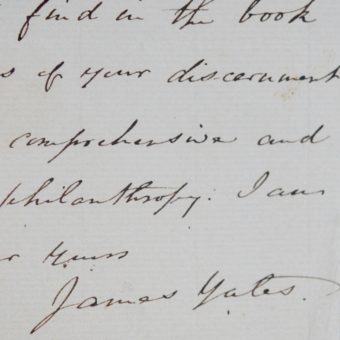 find in the book
s of your discernment
comprehensive and
philanthropy. I am
yours
James Yates.